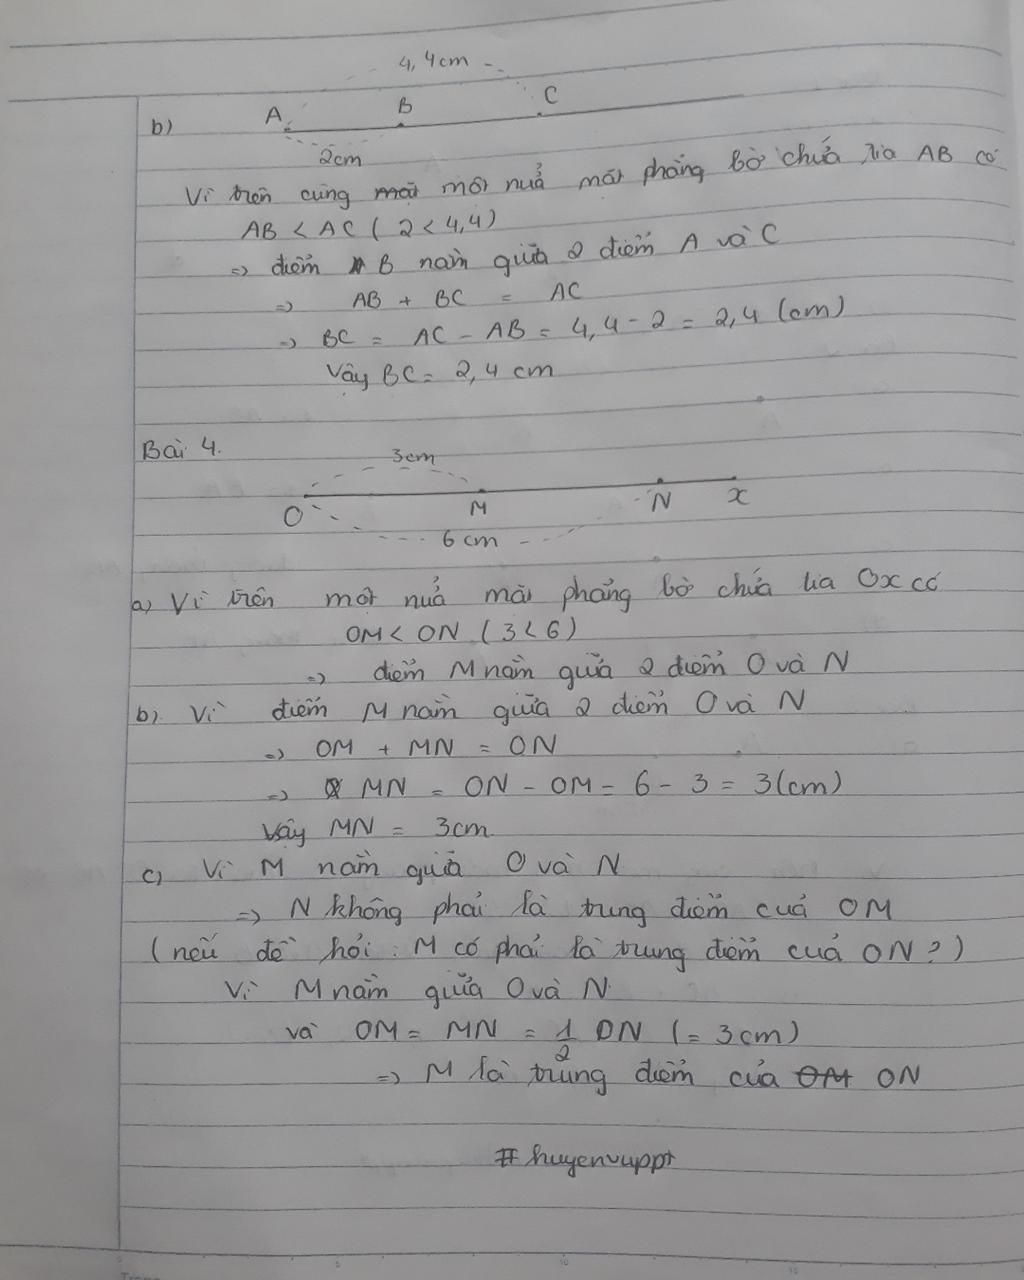 4,4cm
A B C
b)
2cm
Vì trên cùng một nửa mặt phẳng bờ chứa tia AB có
AB < AC ( 2 < 4,4 )
=> điểm B nằm giữa 2 điểm A và C
=> AB + BC = AC
=> BC = AC - AB = 4,4 - 2 = 2,4 (cm)
Vậy BC = 2,4 cm
Bài 4.
3cm
O M N x
6 cm
a) Vì trên một nửa mặt phẳng bờ chứa tia Ox có
OM < ON ( 3 < 6 )
=> điểm M nằm giữa 2 điểm O và N
b) Vì điểm M nằm giữa 2 điểm O và N
=> OM + MN = ON
=> MN = ON - OM = 6 - 3 = 3 (cm)
Vậy MN = 3cm
c) Vì M nằm giữa O và N
=> N không phải là trung điểm của OM
( nếu đề hỏi : M có phải là trung điểm của ON ? )
Vì M nằm giữa O và N
và OM = MN = 1/2 ON ( = 3cm )
=> M là trung điểm của OM ON
# huyenvuppt